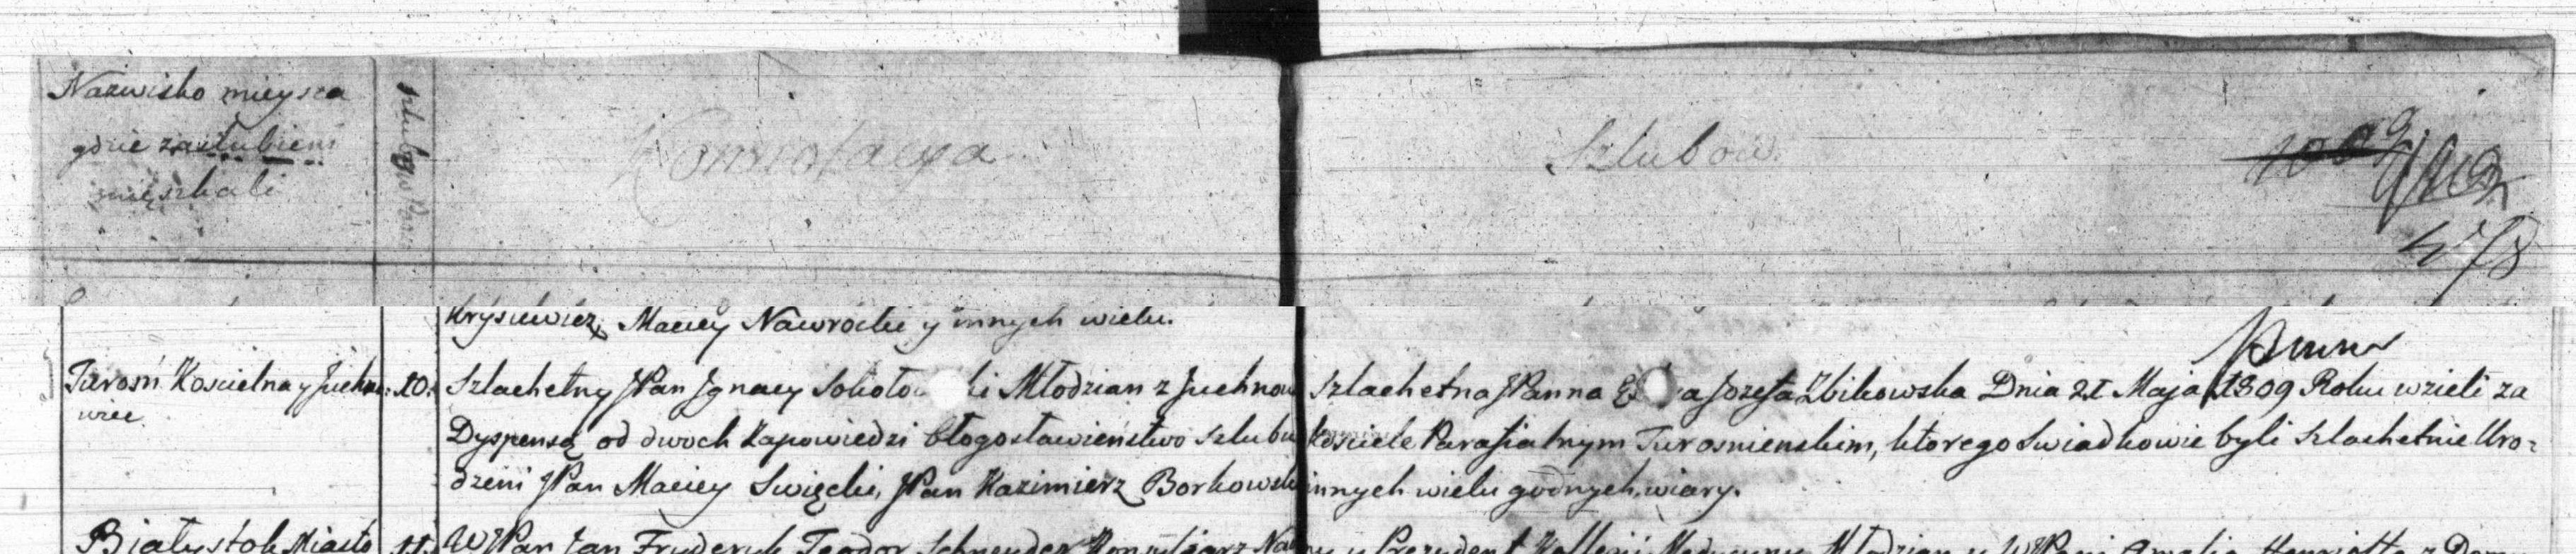 Nazwisko mieysca
gdzie zaslubieni
mięszkali
Konnotacya
Szlubow
478
Krysiewicz, Maciey Nawrocki y innych wielu.
Turosń Koscielna y Juchno
wiec
10.
Szlachetny JPan Jgnacy Młodzian z Juchnow Szlachetna JPanna Jozefa Zbikowska Dnia 21 Maja 1809 Roku wzieli za
Dyspensą od dwoch Zapowiedzi błogosławieństwo szlubu kosciele Parafialnym Turosnienskim, ktorego Swiadkowie byli Szlachetnie Uro-
dzeni JPan Maciey Swięcki, JPan Kazimierz Borkowski innych wielu godnych wiary.
Białystok Miasto
11.
WJPan Jan Fryderyk Teodor Schneyder Konsyliarz y Prezydent Kollegii Medycyny Młodzian y WJPani Amalia Henrietta z Dom